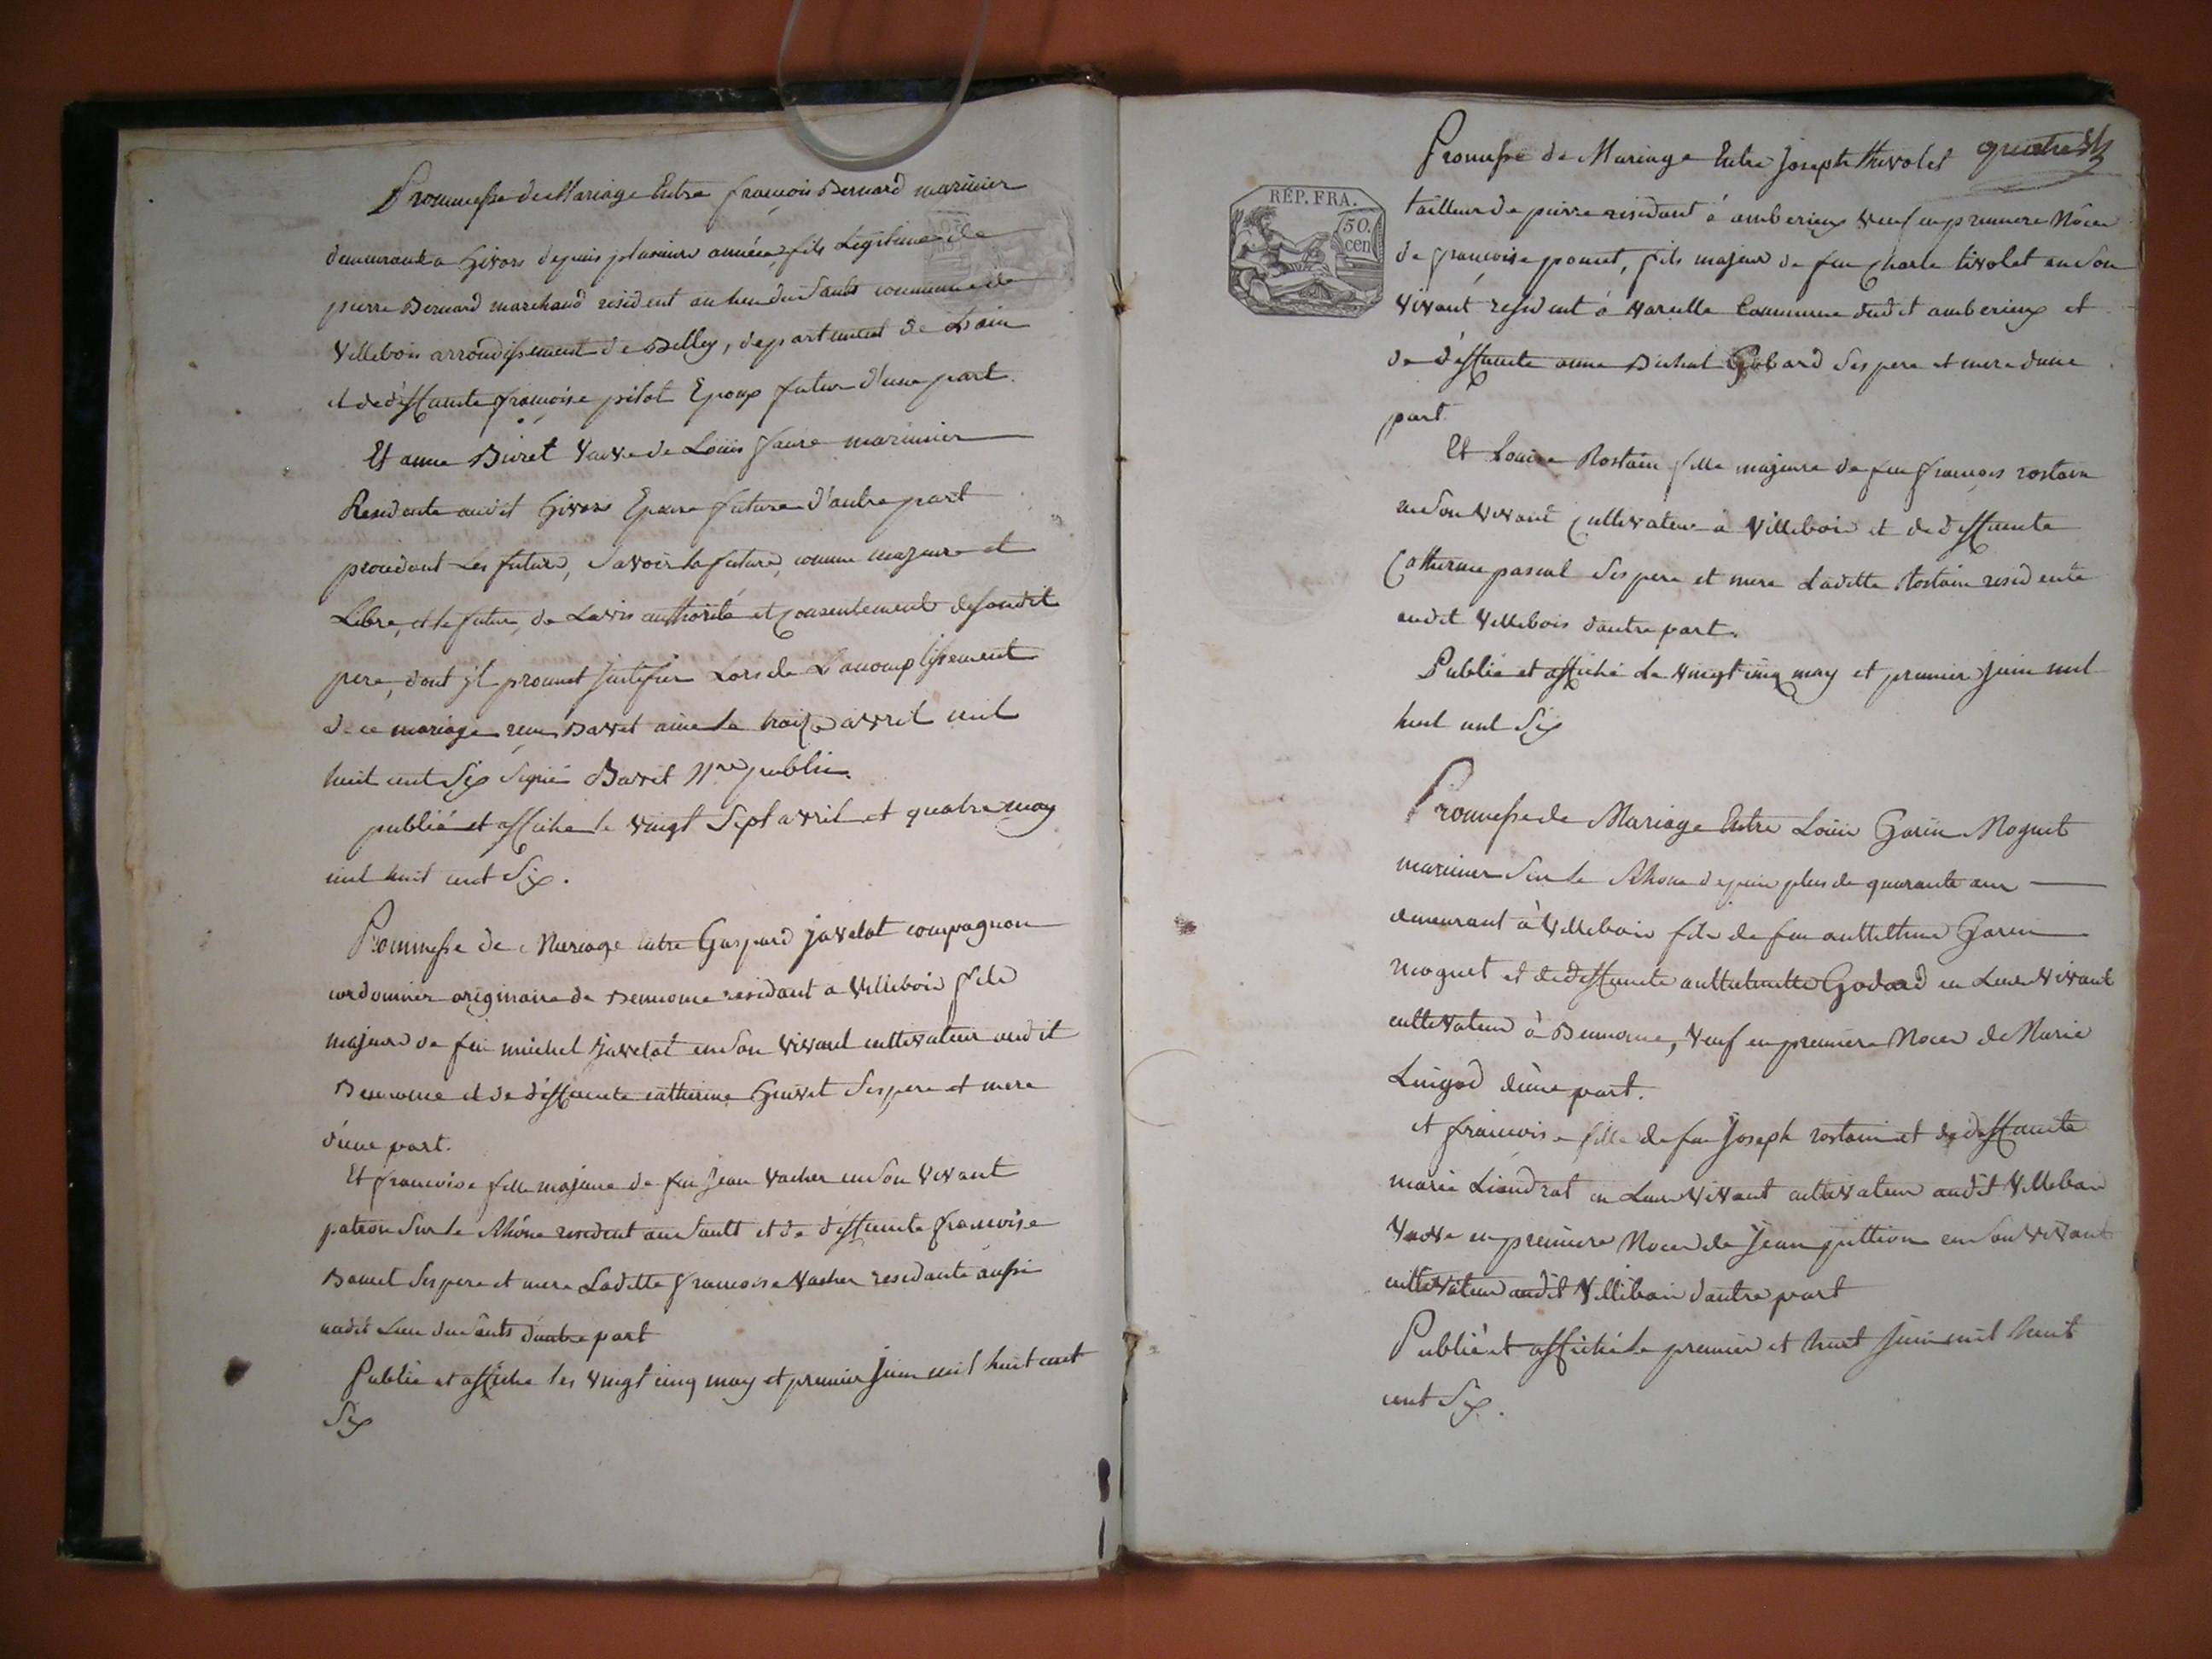 Promumesse de Mariage Entre françois Bernard marinier
demeurant a Givors depuis plusieurs années, fils Legitime de
pierre Bernard marchand resident au lieu du Sault commune de
Villebois arrondissement de Belley, departement de Lain
et de deffuncte françoise pitot Epoux futur d'une part.
Et anne Buret Vauve de Louis faure marinnier
Residante audit Givors Epouse future d'autre part
procedant Les futurs, Savoir la future, comme majeure et
Libre, et le futur, de Lavis authorité et consentement de sondit
pere, dont jl promet justifier Lors de L'acomplissement
de ce mariage Bavet le avril mil
huit cent Six Signé Bavet Nre public.
publié et affiche le vingt Sept avril et quatre may
mil huit cent Six.
Prommesse de Mariage entre Gaspard javelot compagnon
cordonnier originaire de Bennonce residant a Villebois fils
majeur de feu michel javelot en Son vivant cultivateur audit
Bennonce et de deffuncte catherine Guivet Ses pere et mere
d'une part.
Et francoise fille majeure de feu Jean Vacher en Son Vivant
patron Sur le Rhône resident au Sault et de deffuncte francoise
Bonnet Ses pere et mere Laditte francoise Vacher residante aussi
audit Lieu du Sault d'autre part
Publié et affiche les vingt cinq may et premier Juin mil huit cent
Six
quatre
Promesse de Mariage Entre Joseph thivolet
RÉP. FRA.
50.
cen
tailleur de pierre residant à amberieux veuf en premiere Nôces
de françoise poncet, fils majeur de feu charle tivolet en Son
vivant resident à Vareille Commune dudit amberieux et
de deffuncte anne Gobard Ses pere et mere dune
part.
Et Louise Rostain fille majeure de feu françois rostain
en Son vivant Cultivateur à Villebois et de deffuncte
Catherine pascal Ses pere et mere Laditte Rostain residente
audit Villebois dautre part.
Publié et affiché le vingt cinq may et premier juin mil
huit cent Six
Promesse de Mariage Entre Louis Garin Moguet
marinier Sur le Rhone depuis plus de quarante ans
demeurant à Villebois fils de feu anthelme Garin
moguet et de deffuncte Godard en Leur vivant
cultivateur à Bennonce, veuf en premiere Noces de Marie
Lingod dune part.
et francoise fille de feu Joseph rostain et de deffuncte
marie Liandrat en Leur vivant cultivateur audit Villebois
Vauve en premiere Noces de Jean juttion en Son vivant
cultivateur audit Villebois dautre part
Publié et affiché le premier et huit Juin mil huit
cent Six.